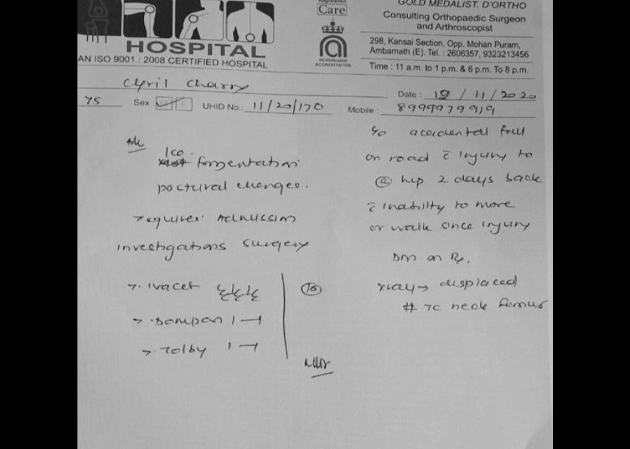 GOLD MEDALIST. D'ORTHO
Consulting Orthopaedic Surgeon
and Arthroscopist
Care
HOSPITAL
AN ISO 9001 : 2008 CERTIFIED HOSPITAL
ACCREDITATION
298, Kansai Section, Opp. Mohan Puram,
Ambarnath (E). Tel. : 2606357, 9323213456
Time : 11 a.m. to 1 p.m. & 6 p.m. To 8 p.m.
Cyril Charry
Date : 12/11/2020
75 Sex : UHID No. 11/20/170 Mobile : 8999979919
Adv
Ice fomentation
postural changes.
requires Admission
investigations surgery
→ Ivacet
→ Sompan 1 —1
→ Tolby 1 —1
c/o accidental fall
on road c̄ injury to
hip 2 days back
c̄ inability to move
or walk since injury
DM on Rx.
xray → displaced
# neck femur